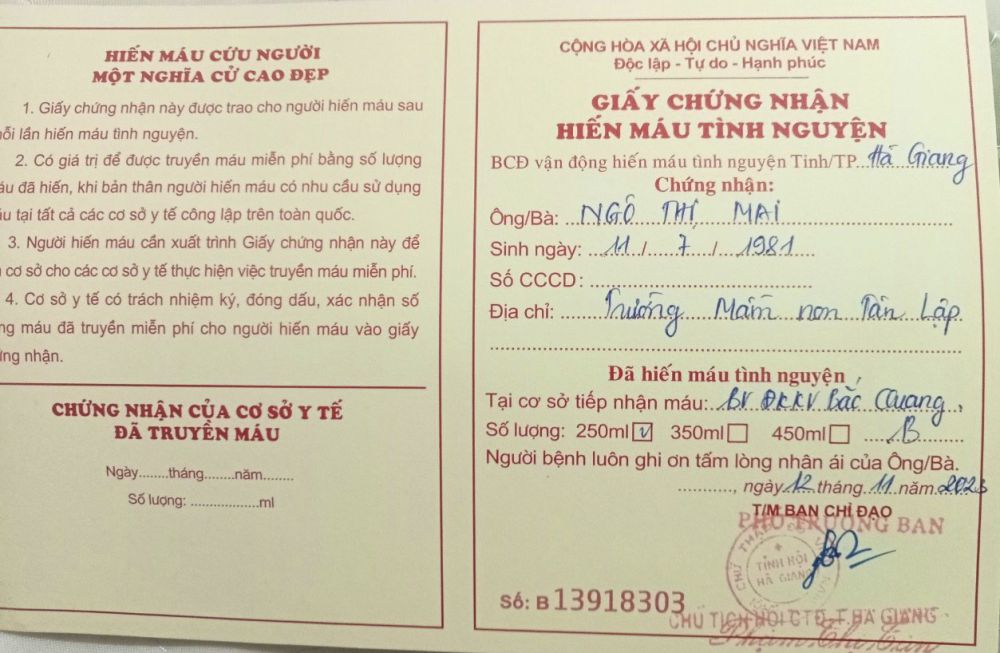 HIẾN MÁU CỨU NGƯỜI
MỘT NGHĨA CỬ CAO ĐẸP
1. Giấy chứng nhận này được trao cho người hiến máu sau
mỗi lần hiến máu tình nguyện.
2. Có giá trị để được truyền máu miễn phí bằng số lượng
máu đã hiến, khi bản thân người hiến máu có nhu cầu sử dụng
máu tại tất cả các cơ sở y tế công lập trên toàn quốc.
3. Người hiến máu cần xuất trình Giấy chứng nhận này để
cơ sở cho các cơ sở y tế thực hiện việc truyền máu miễn phí.
4. Cơ sở y tế có trách nhiệm ký, đóng dấu, xác nhận số
lượng máu đã truyền miễn phí cho người hiến máu vào giấy
chứng nhận.
CHỨNG NHẬN CỦA CƠ SỞ Y TẾ
ĐÃ TRUYỀN MÁU
Ngày........tháng........năm........
Số lượng: .................ml
CỘNG HÒA XÃ HỘI CHỦ NGHĨA VIỆT NAM
Độc lập - Tự do - Hạnh phúc
GIẤY CHỨNG NHẬN
HIẾN MÁU TÌNH NGUYỆN
BCĐ vận động hiến máu tình nguyện Tỉnh/TP Hà Giang
Chứng nhận:
Ông/Bà: NGÔ THỊ MAI
Sinh ngày: 11 / 7 / 1981
Số CCCD:
Địa chỉ: Trường Mầm non Tân Lập
Đã hiến máu tình nguyện
Tại cơ sở tiếp nhận máu: BV ĐKKV Bắc Quang
Số lượng: 250ml 350ml 450ml B
Người bệnh luôn ghi ơn tấm lòng nhân ái của Ông/Bà.
, ngày 12 tháng 11 năm 2023
T/M BAN CHỈ ĐẠO
PHÓ TRƯỞNG BAN
CHỮ THẬP ĐỎ
TỈNH HỘI
HÀ GIANG
Số: B 13918303
CHỦ TỊCH HỘI CTĐ T.HÀ GIANG